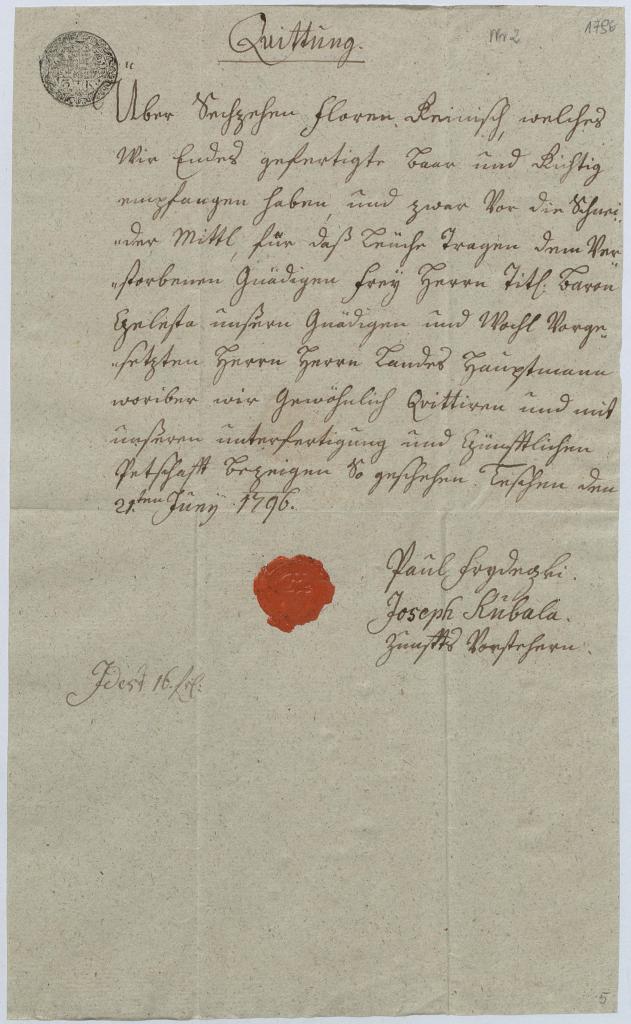 Nr. 2
1796
Quittung.
Über Sechzehen floren Reinisch, welches
Wir Endes gefertigte baar und Richtig
empfangen haben, und zwar Vor die Schnei-
-der Mittl, für daß Leüche Tragen dem Ver
-storbenen Gnädigen Frey Herrn Titl: Baron
Czelesta unsern Gnädigen und Wohl Vorge-
-setzten Herrn Herrn Landes Hauptmann
woriber wir Gewöhnlich Quittiren und mit
unseren unterfertigung und Zünfftlichen
Petschafft bezeigen So geschehen Teschen den
21ten Juny 1796.
Paul Frydezki.
Joseph Kubala.
Zunffts Vorstehern.
Idest 16. frl:
5